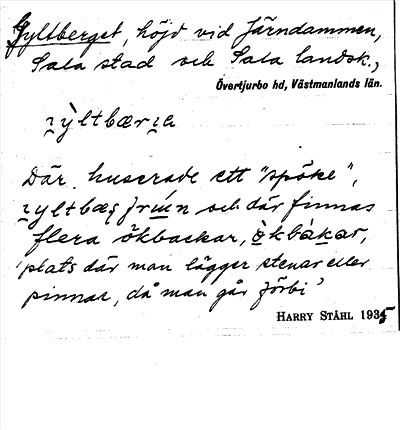 Gyltberget, höjd vid Järndammen,
Sala stad och Sala landsk.,
Övertjurbo hd, Västmanlands län.
Där huserade ett "spöke",
och där finnas
flera ökbackar,
'plats där man lägger stenar eller
pinnar, då man går förbi'
HARRY STÅHL 1935